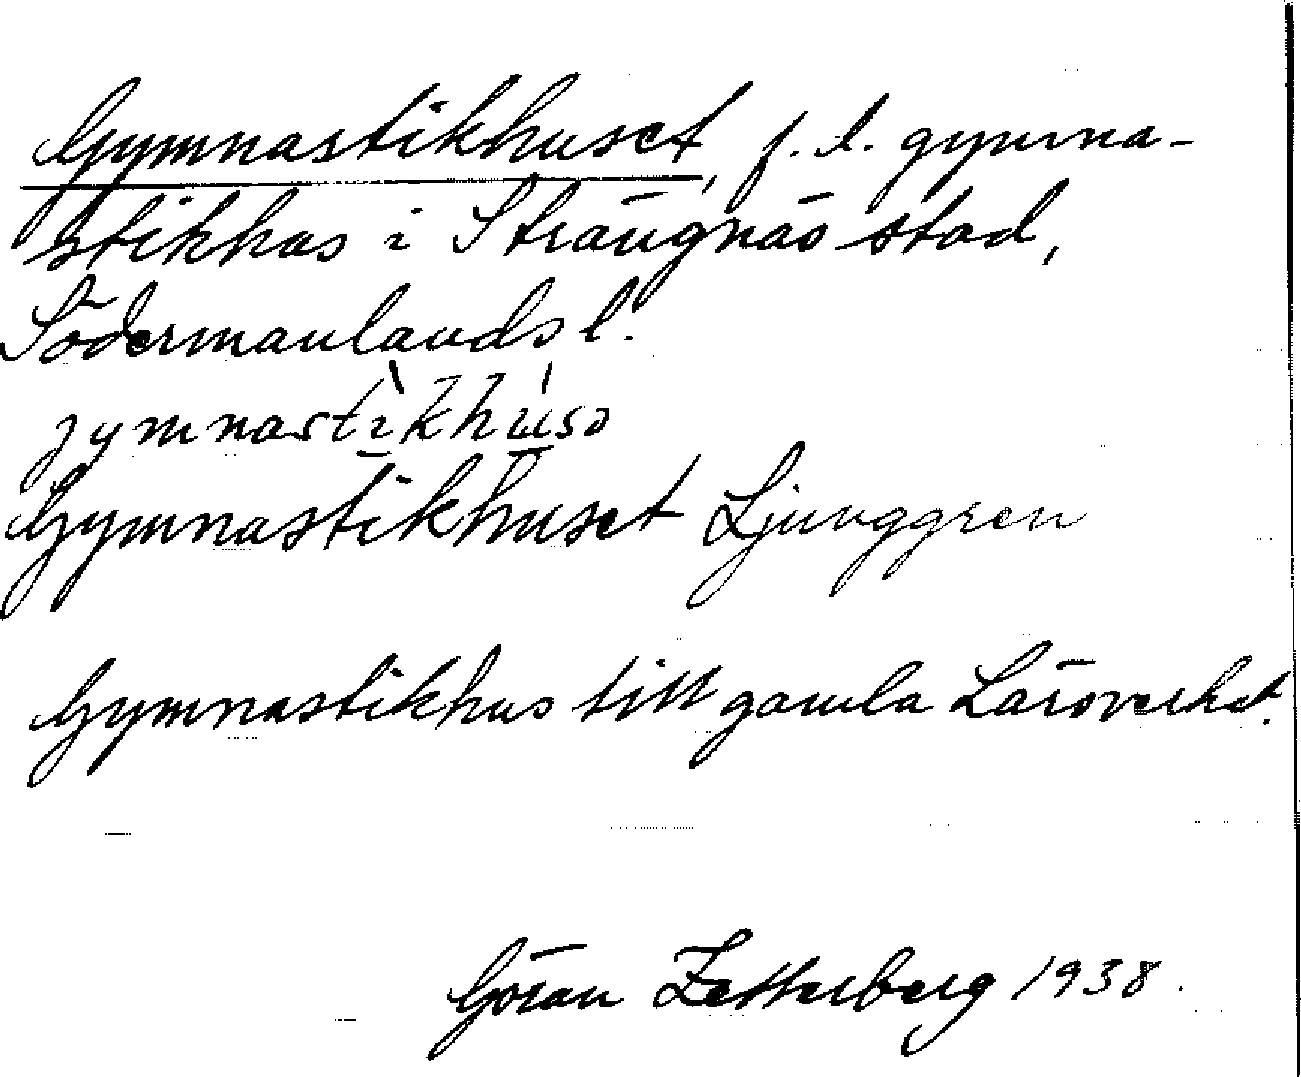 Gymnastikhuset, f.d. gymna-
stikhus i Strängnäs stad,
Södermanlands l.
gymnastìkhúsə
Gymnastikhuset Ljunggren
Gymnastikhus till gamla Läroverket.
Göran Zetterberg 1938.